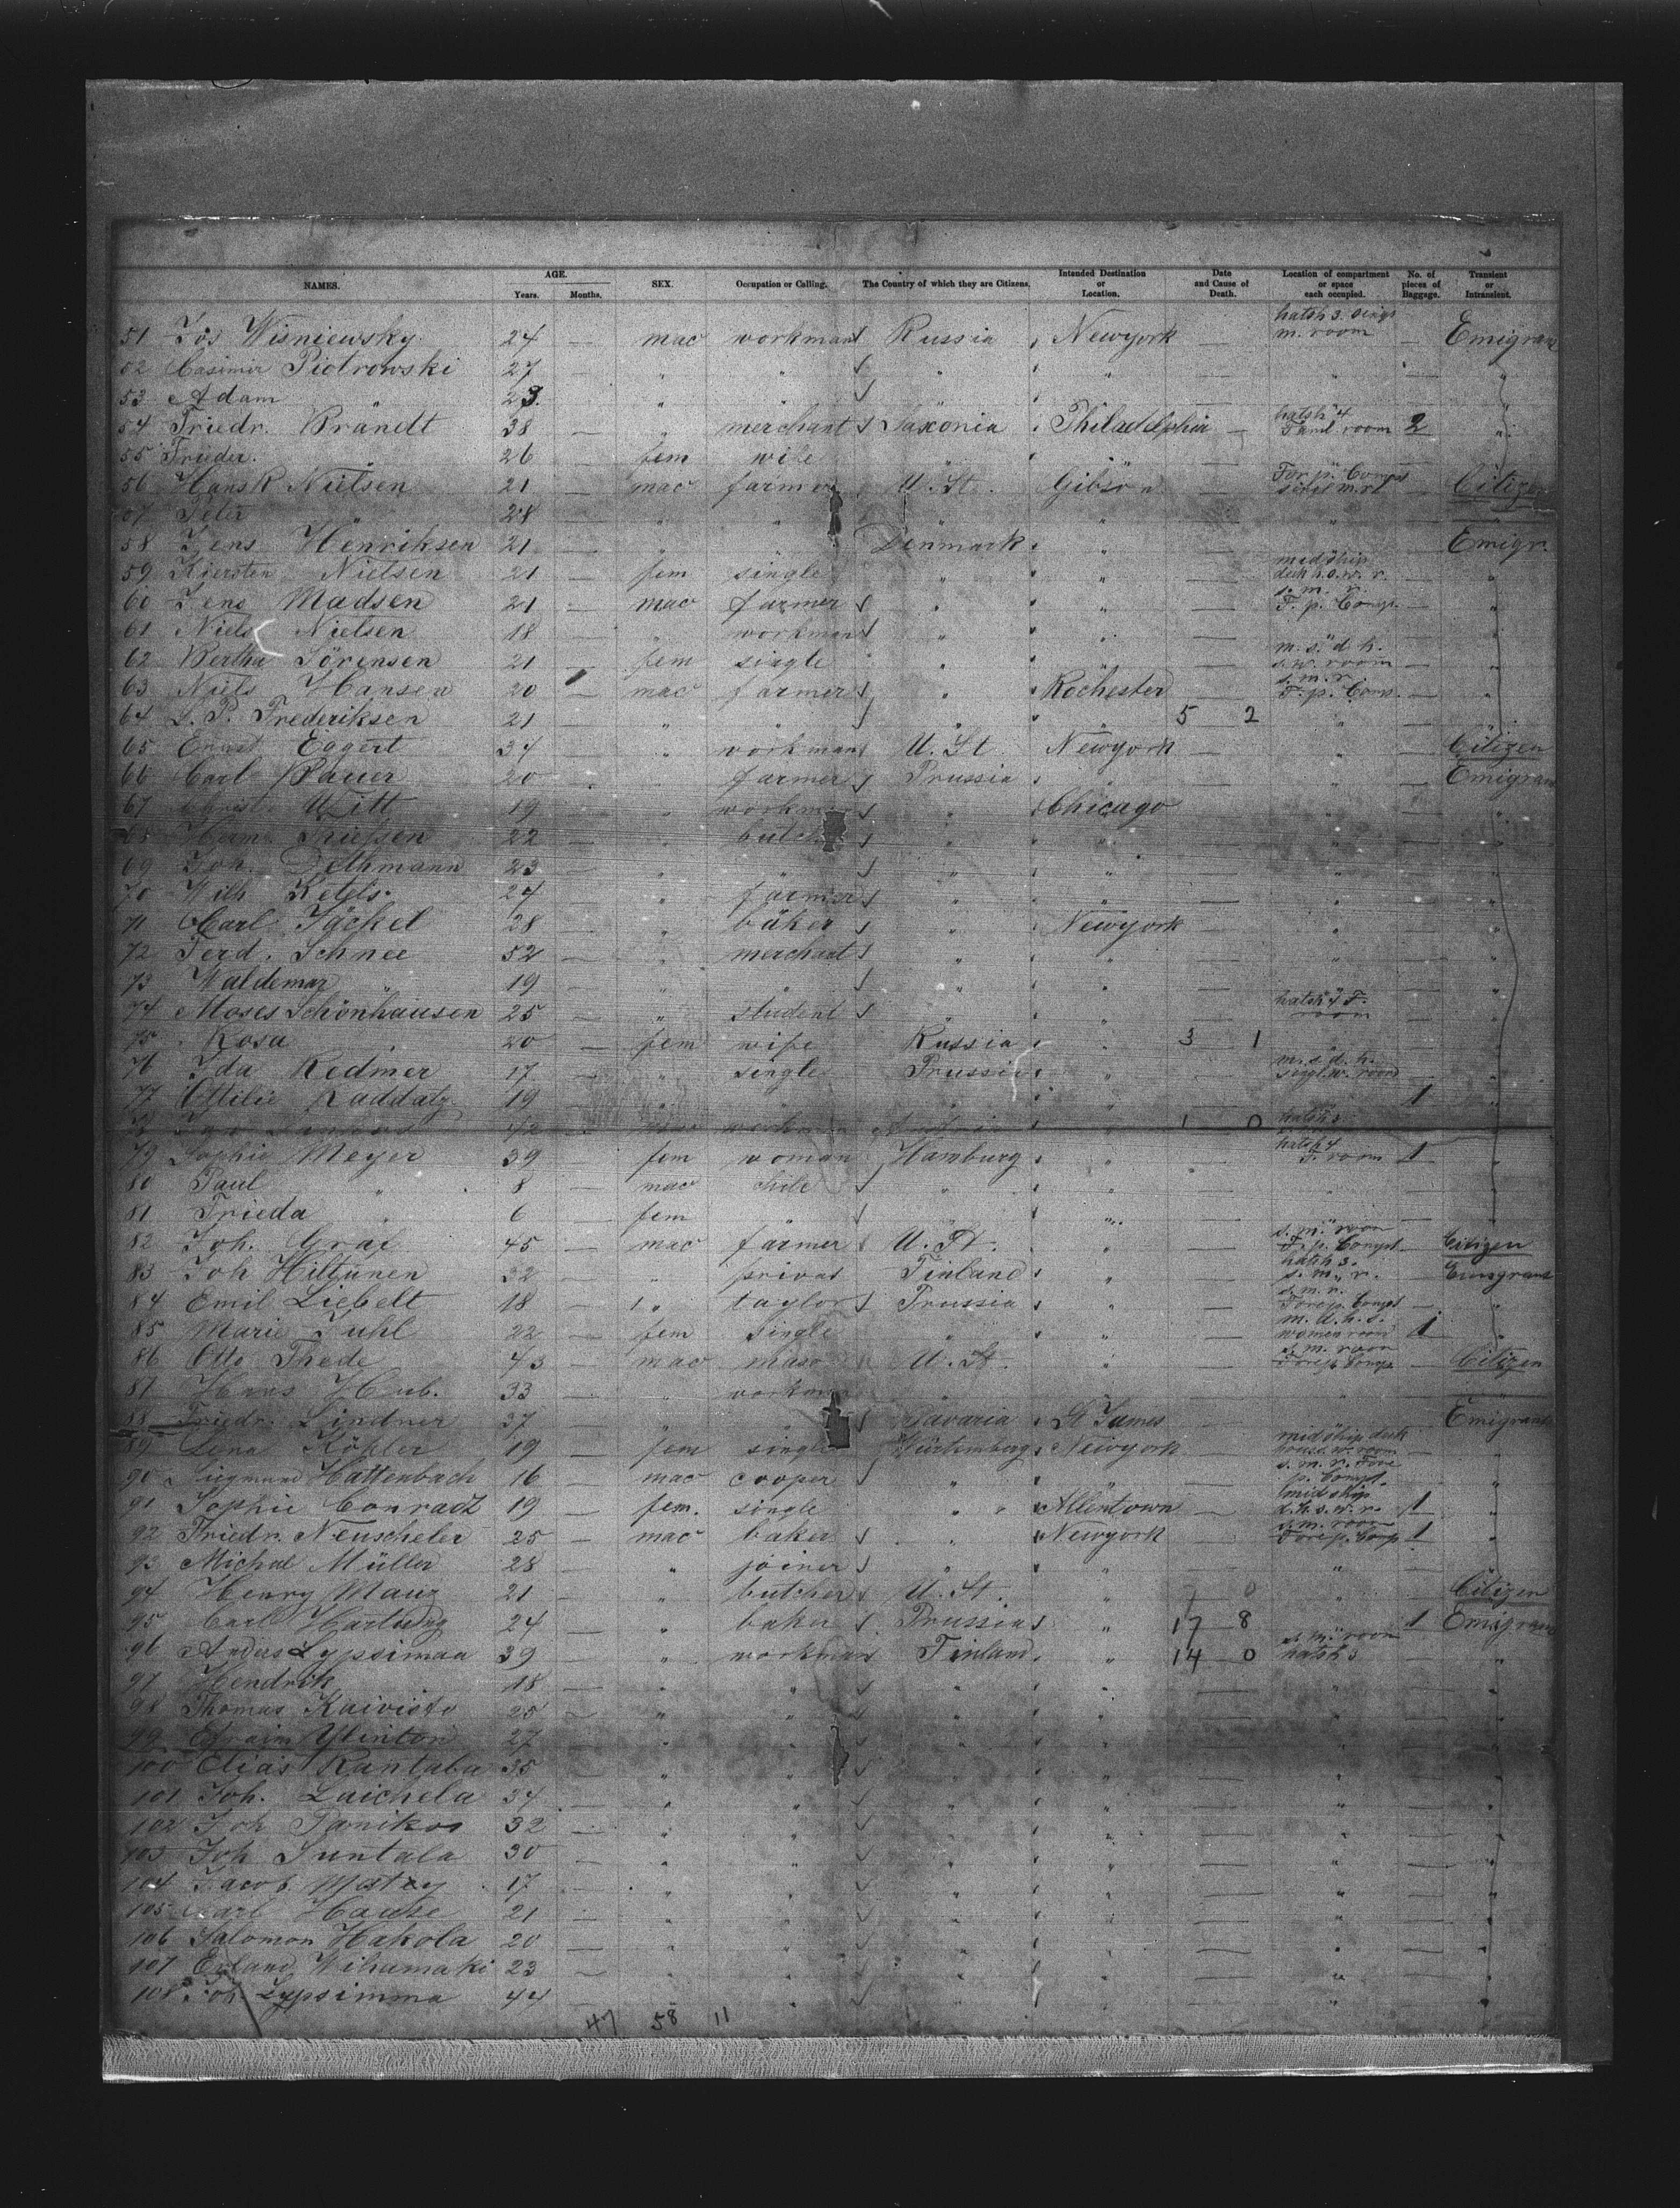 NAMES. AGE. Years. Months. SEX. Occupation or Calling. The Country of which they are Citizens. Intended Destination or Location. Date and Cause of Death. Location of compartment or space each occupied. No. of pieces of Baggage. Transient or Intransient.
51 Jos Wisniewsky 24 — mac workman Russia Newyork — hatsh 3 singl m. room — Emigran
52 Casimir Piotrowski 27 — " " " " — " — "
53 Adam " 23. " " " " — " — "
54 Friedr. Brandt 38 — " merchant Saxonia Philadelphia — hatsh 4 Faml. room 2 "
55 Frieder. " 26 — fem wife " " — " — "
56 Hans R Nielsen 21 — mac farmer U. St. Gibson — For p. Comps — Citizen
57 Peter " 28 — " " " " — " — "
58 Jens Henriksen 21 — " " Denmark " — " — Emigr.
59 Kiersten Nielsen 21 — fem single " " — midship deck h. s. w. r. — "
60 Jens Madsen 21 — mac farmer " " — s. m. r. F. p. Comp. — "
61 Niels Nielsen 18 — " workman " " — " — "
62 Bertha Sörensen 21 — fem single " " — m. s. d. h. s. w. room — "
63 Niels Hansen 20 — mac farmer " Rochester — s. m. r. F. p. Com. — "
64 L. P. Frederiksen 21 — " " " " 5 2 " — "
65 Ernst Eggert 34 — " workman U. St Newyork — " — Citizen
66 Carl Bauer 20 — " farmer Prussia " — " — Emigran
67 Christ. Witt 19 — " workman " Chicago — " — "
68 Herm. Thiessen 22 — " butch " " — " — "
69 Joh. Dethmann 23 — " " " " — " — "
70 Wilh Ketels 24 — " farmer " " — " — "
71 Carl Jäckel 28 — " baker " Newyork — " — "
72 Ferd. Schnee 52 — " merchant " " — " — "
73 Waldemar " 19 — " " " " — " — "
74 Moses Schönhausen 25 — " student " " — hatsh 4 F. room — "
75 Rosa " 20 — fem wife Russia " 3 1 " — "
76 Ida Redmer 17 — " single Prussia " — m. s. d. h. singl. w. room — "
77 Ottilie Raddatz 19 — " " " " — " 1 "
42 — workman " 1 0 hatsh 3
79 Sophie Meyer 39 — fem woman Hamburg " — hatsh 4 F. room 1 "
80 Paul " 8 — mac child " " — " — "
81 Frieda " 6 — fem " " " — " — "
82 Joh. Graf 45 — mac farmer U. St. " — s. m. room F. p. Compt. — Citizen
83 Joh Hiltünen 32 — " privat Finland " — hatsh 3. s. m. r. — Emigrant
84 Emil Liebelt 18 — " taylor Prussia " — s. m. r. Forep. Compt — "
85 Marie Juhl 22 — fem single " " — m. d. h. s. women room 1 "
86 Otto Thede 43 — mac maso U. St. " — s. m. room Forep. Comp — Citizen
87 Hans 33 — " workman " " — " — "
88 Friedr. Lindner 37 — " " Bavaria St James — " — Emigrant
89 Lena Köhler 19 — fem single Würtemberg Newyork — midship deck house w. room — "
90 Siegmund Hattenbach 16 — mac cooper " " — s. m. r. Fore p. Compt. — "
91 Sophie Conradt 19 — fem. single " Allentown — midship d. h. s. w. r. 1 "
92 Friedr. Neuscheler 25 — mac baker " Newyork — s. m. room Forep. Comp 1 "
93 Michal Müller 28 — " joiner " " — " — "
94 Henry Mauz 21 — " butcher U. St. " — " — Citizen
95 Carl Hartwig 24 — " baker Prussia " 17 8 " 1 Emigran
96 Andus Lypsimaa 39 — " workman Finland " 14 0 s. m. room hatsh 3 — "
97 Hendrik " 18 — " " " " — " — "
98 Thomas Kaivisto 25 — " " " " — " — "
99 Efraim Ylinton 27 — " " " " — " — "
100 Elias Rantala 35 — " " " " — " — "
101 Joh. Luichela 34 — " " " " — " — "
102 Joh Panikos 32 — " " " " — " — "
103 Joh Juntala 30 — " " " " — " — "
104 Jacob 17 — " " " " — " — "
105 Carl 21 — " " " " — " — "
106 Salomon Hakola 20 — " " " " — " — "
107 Erland Wihamaki 23 — " " " " — " — "
108 Joh Lypsimma 44 — " " " " — " — "
47 58 11